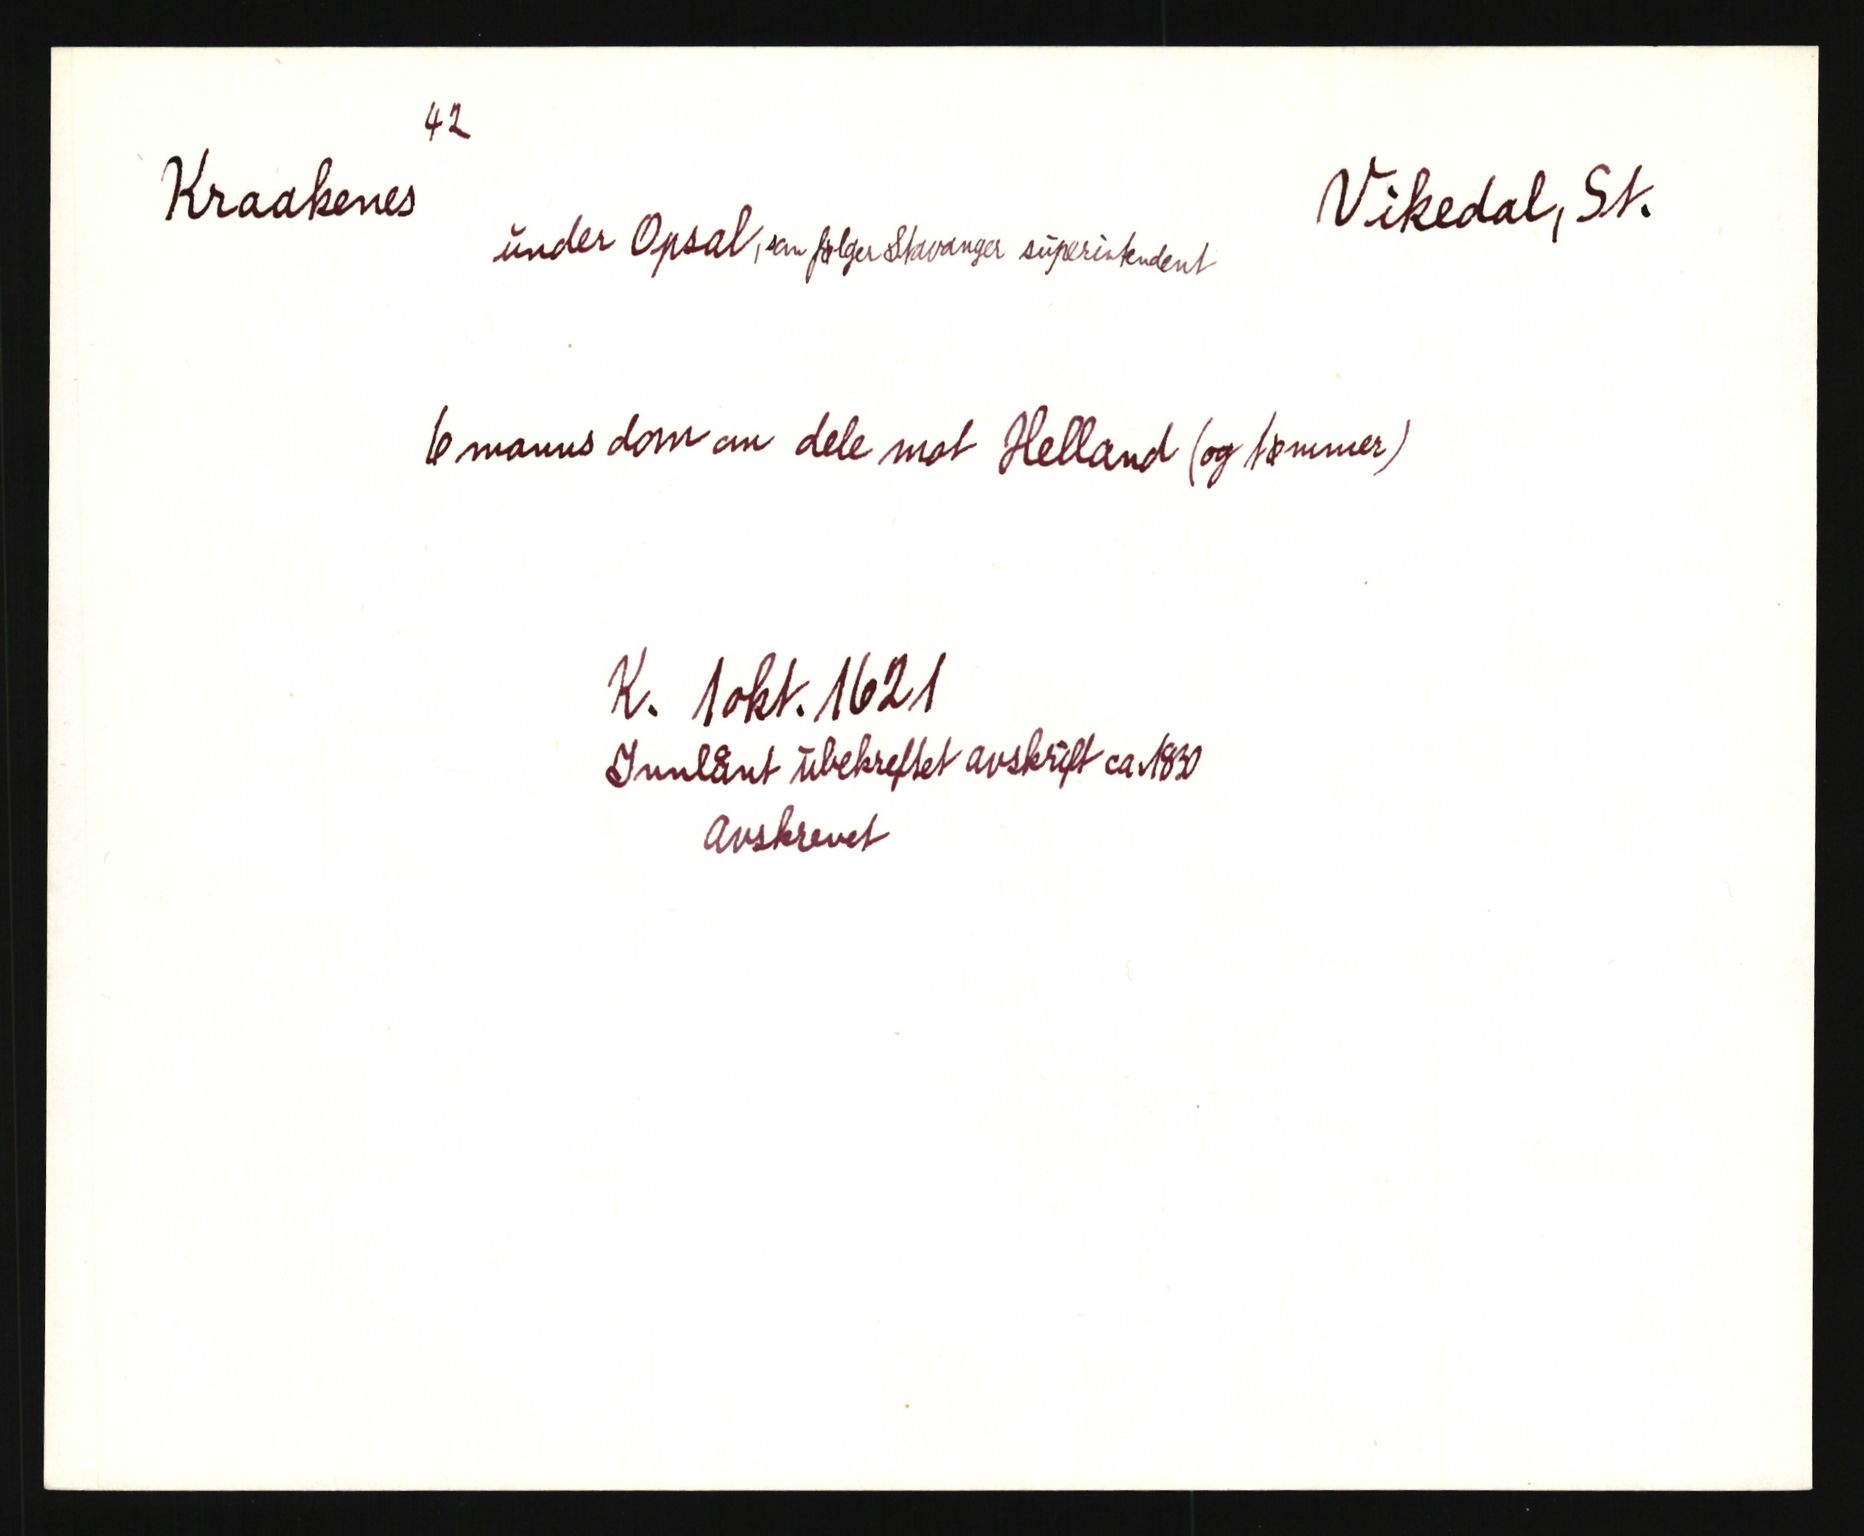 42
Kraakenes
Vikedal, St.
under Opsal, som følger Stavanger superintendent
6 manns dom om dele mot Helland (og tømmer)
K. 1 okt. 1621
Innlånt ubekreftet avskrift ca. 1830
Avskrevet